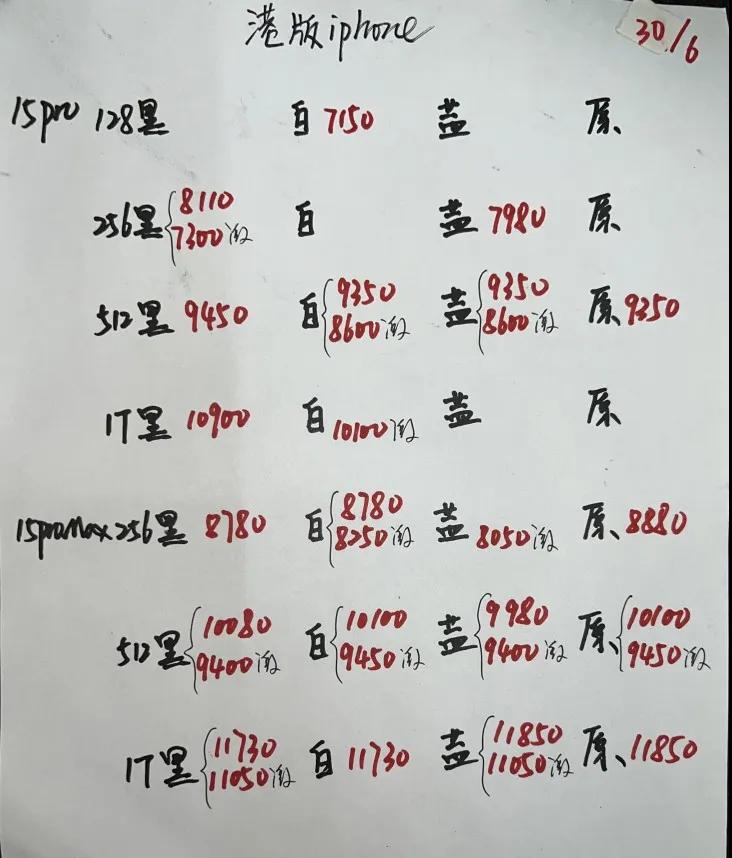 港版iphone 30/6
15pro 128黑 白 7150 蓝 原
256黑 8110 白 蓝 7980 原
7300激
512黑 9450 白 9350 蓝 9350 原 9350
8600激 8600激
1T黑 10900 白 10100激 蓝 原
15proMax 256黑 8780 白 8780 蓝 8050激 原 8880
8250激
512黑 10080 白 10100 蓝 9980 原 10100
9400激 9450激 9400激 9450激
1T黑 11730 白 11730 蓝 11850 原 11850
11050激 11050激